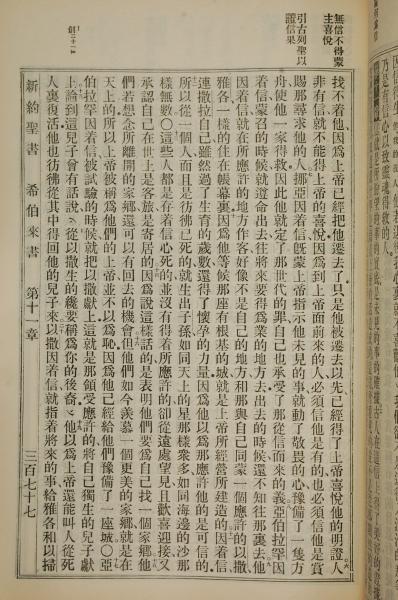 無信不得蒙
主喜悅
引古列聖以
證信果
乃是有信心以致靈魂得救的人
找不着他因爲上帝已經把他遷去了只是他被遷去以先已經得了上帝喜悅他的明證人
非有信就不能得上帝的喜悅因爲到上帝面前來的人必須信他是有的也必須信他是賞
賜那尋求他的人挪亞因着信旣蒙上帝指示他未見的事就動了敬畏的心豫備了一隻方
舟使他一家得救因此他就定了那世代的罪自己也承受了那從信而來的義亞伯拉罕因
着信蒙召的時候就遵命出去往將來要得爲業的地方去出去的時候還不知往那裏去他
因着信就在所應許的地方作客好像不是自己的地方和那與自己同蒙一個應許的以撒
雅各一樣的住在帳幕裏因爲他等候那座有根基的城就是上帝所經營所建造的因着信
連撒拉自己雖然過了生育的歲數還得了懷孕的力量因爲他以爲那應許他的是可信的
所以從一個人而且是彷彿已死的就生出子孫如同天上的星那樣衆多如同海邊的沙那
樣無數〇這些人都是在着信心死的並沒有得着所應許的卻從遠處望見且歡喜迎接又
承認自己在世上是客旅是寄居的因爲說這樣話的是表明他們要爲自己找一個家鄉他
們若想念所離開的家鄉還可以有回去的機會但他們如今羨慕一個更美的家鄉就是在
天上的所以上帝被稱爲他們的上帝並不以爲恥因爲他已經給他們豫備了一座城〇亞
伯拉罕因着信被試驗的時候就把以撒獻上這就是那領受應許的將自己獨生的兒子獻
上論到這兒子曾有話說從以撒生的纔要稱爲你的後裔他以爲上帝還能叫人從死
人裏復活他也彷彿從其中得回他的兒子來以撒因着信就指着將來的事給雅各和以掃
新約聖書 希伯來書 第十一章 三百七十七